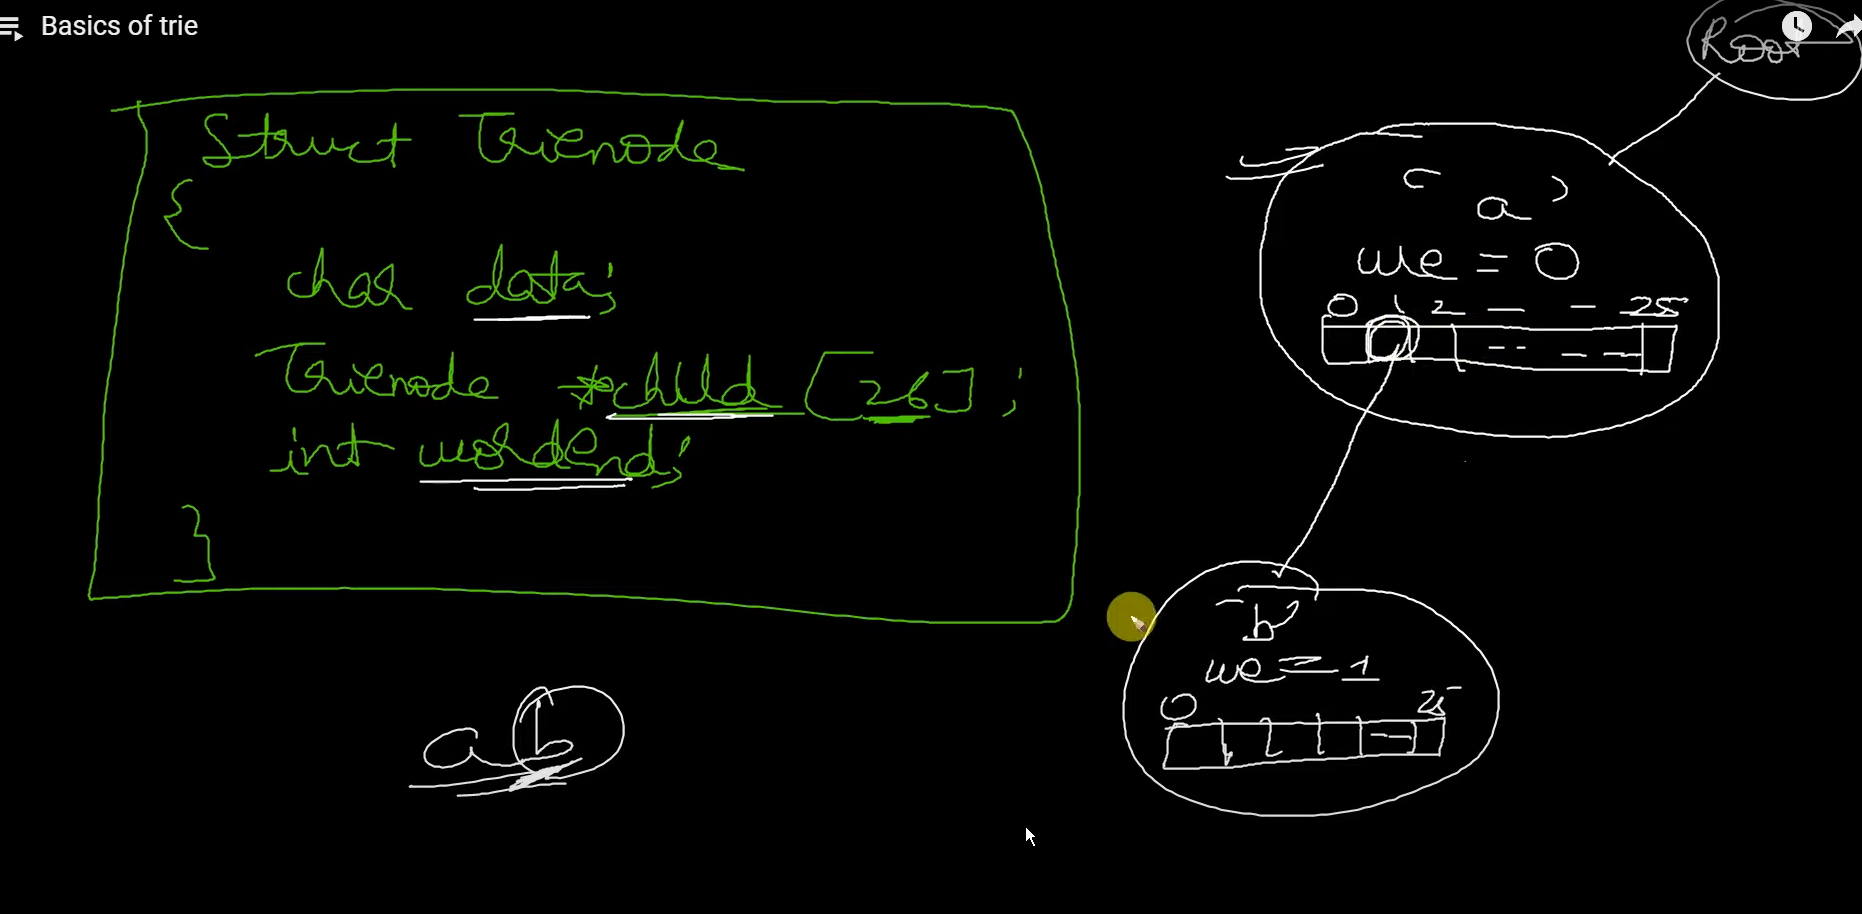 Basics of trie
Root
Struct Trienode
{
char data;
Trienode *child [26];
int wordEnd;
}
'a'
we = 0
0 1 2 — - 25
'b'
we = 1
0 25
ab